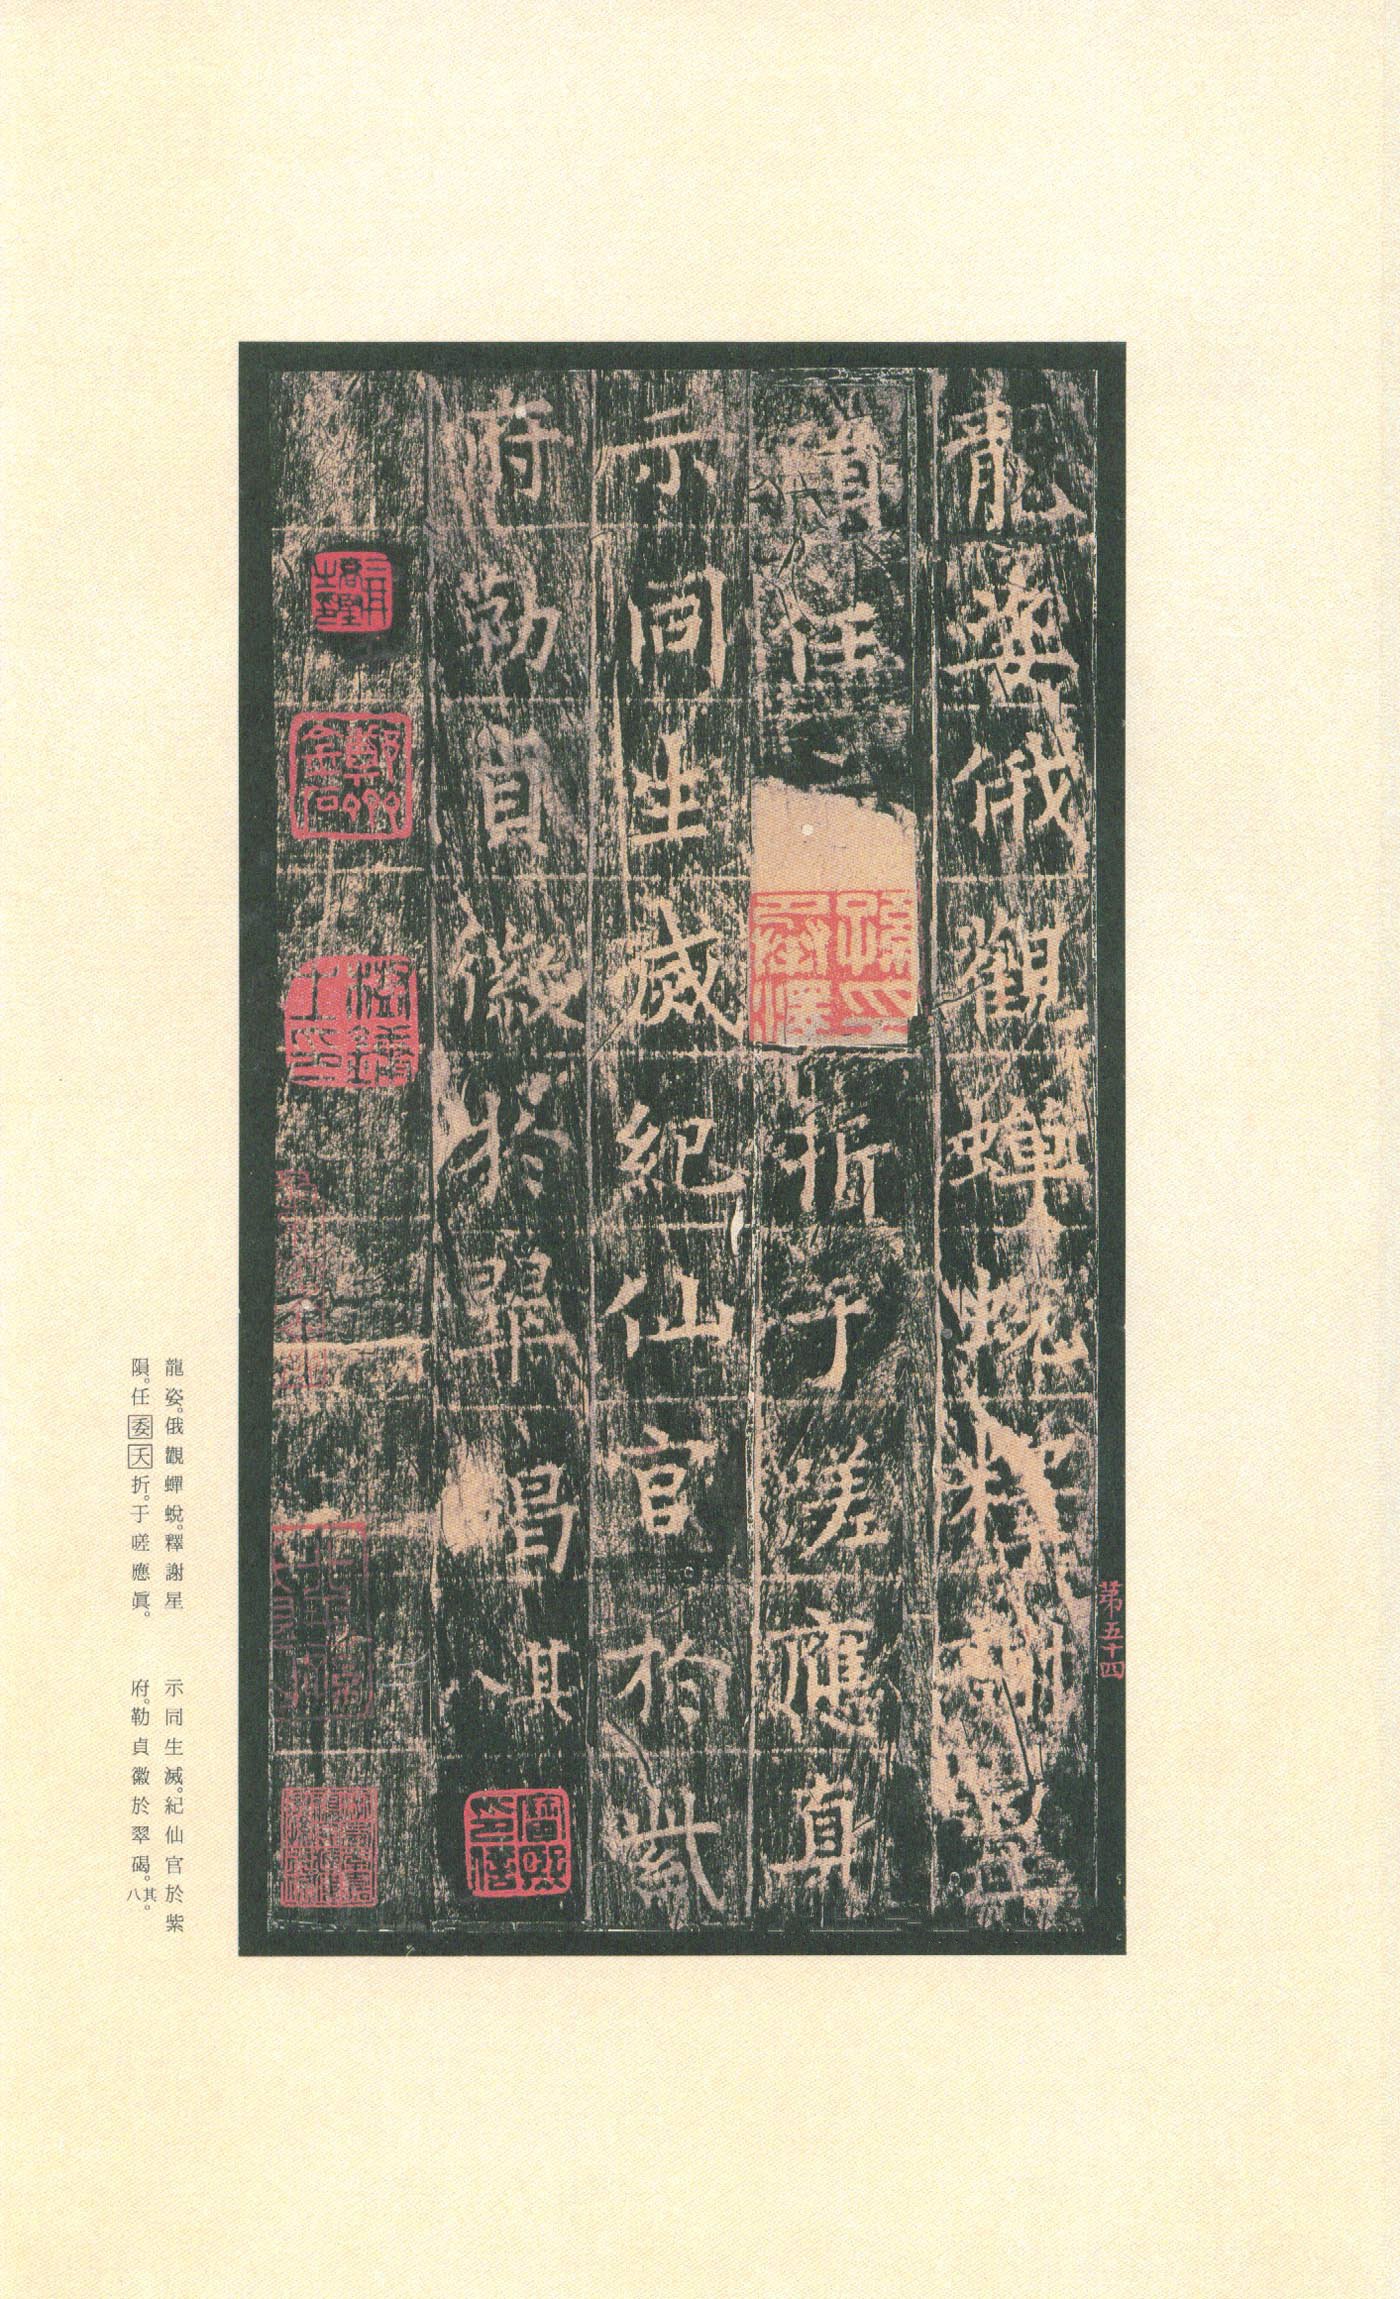 第五十四
龍姿俄觀蟬蛻釋謝星
隕任折于嗟應真
示同生滅紀仙官於紫
府勒貞徽於翠碣其八
寶熙
龍姿。俄觀蟬蛻。釋謝星
隕。任委夭折。于嗟應眞。
示同生滅。紀仙官於紫
府。勒貞徽於翠碣。其八。